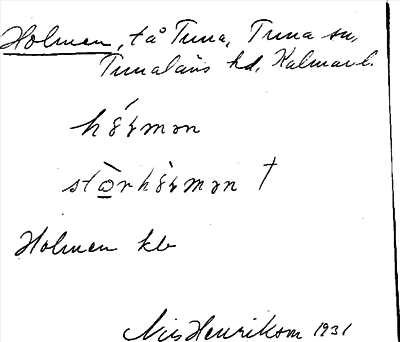 Holmen, tå Tuna, Tuna sn,
Tunaläns hd, Kalmar l.
hɞ́ɽmən
stò̲rhɞ̀ɽmən †
Holmen kb
Nils Henrikson 1931